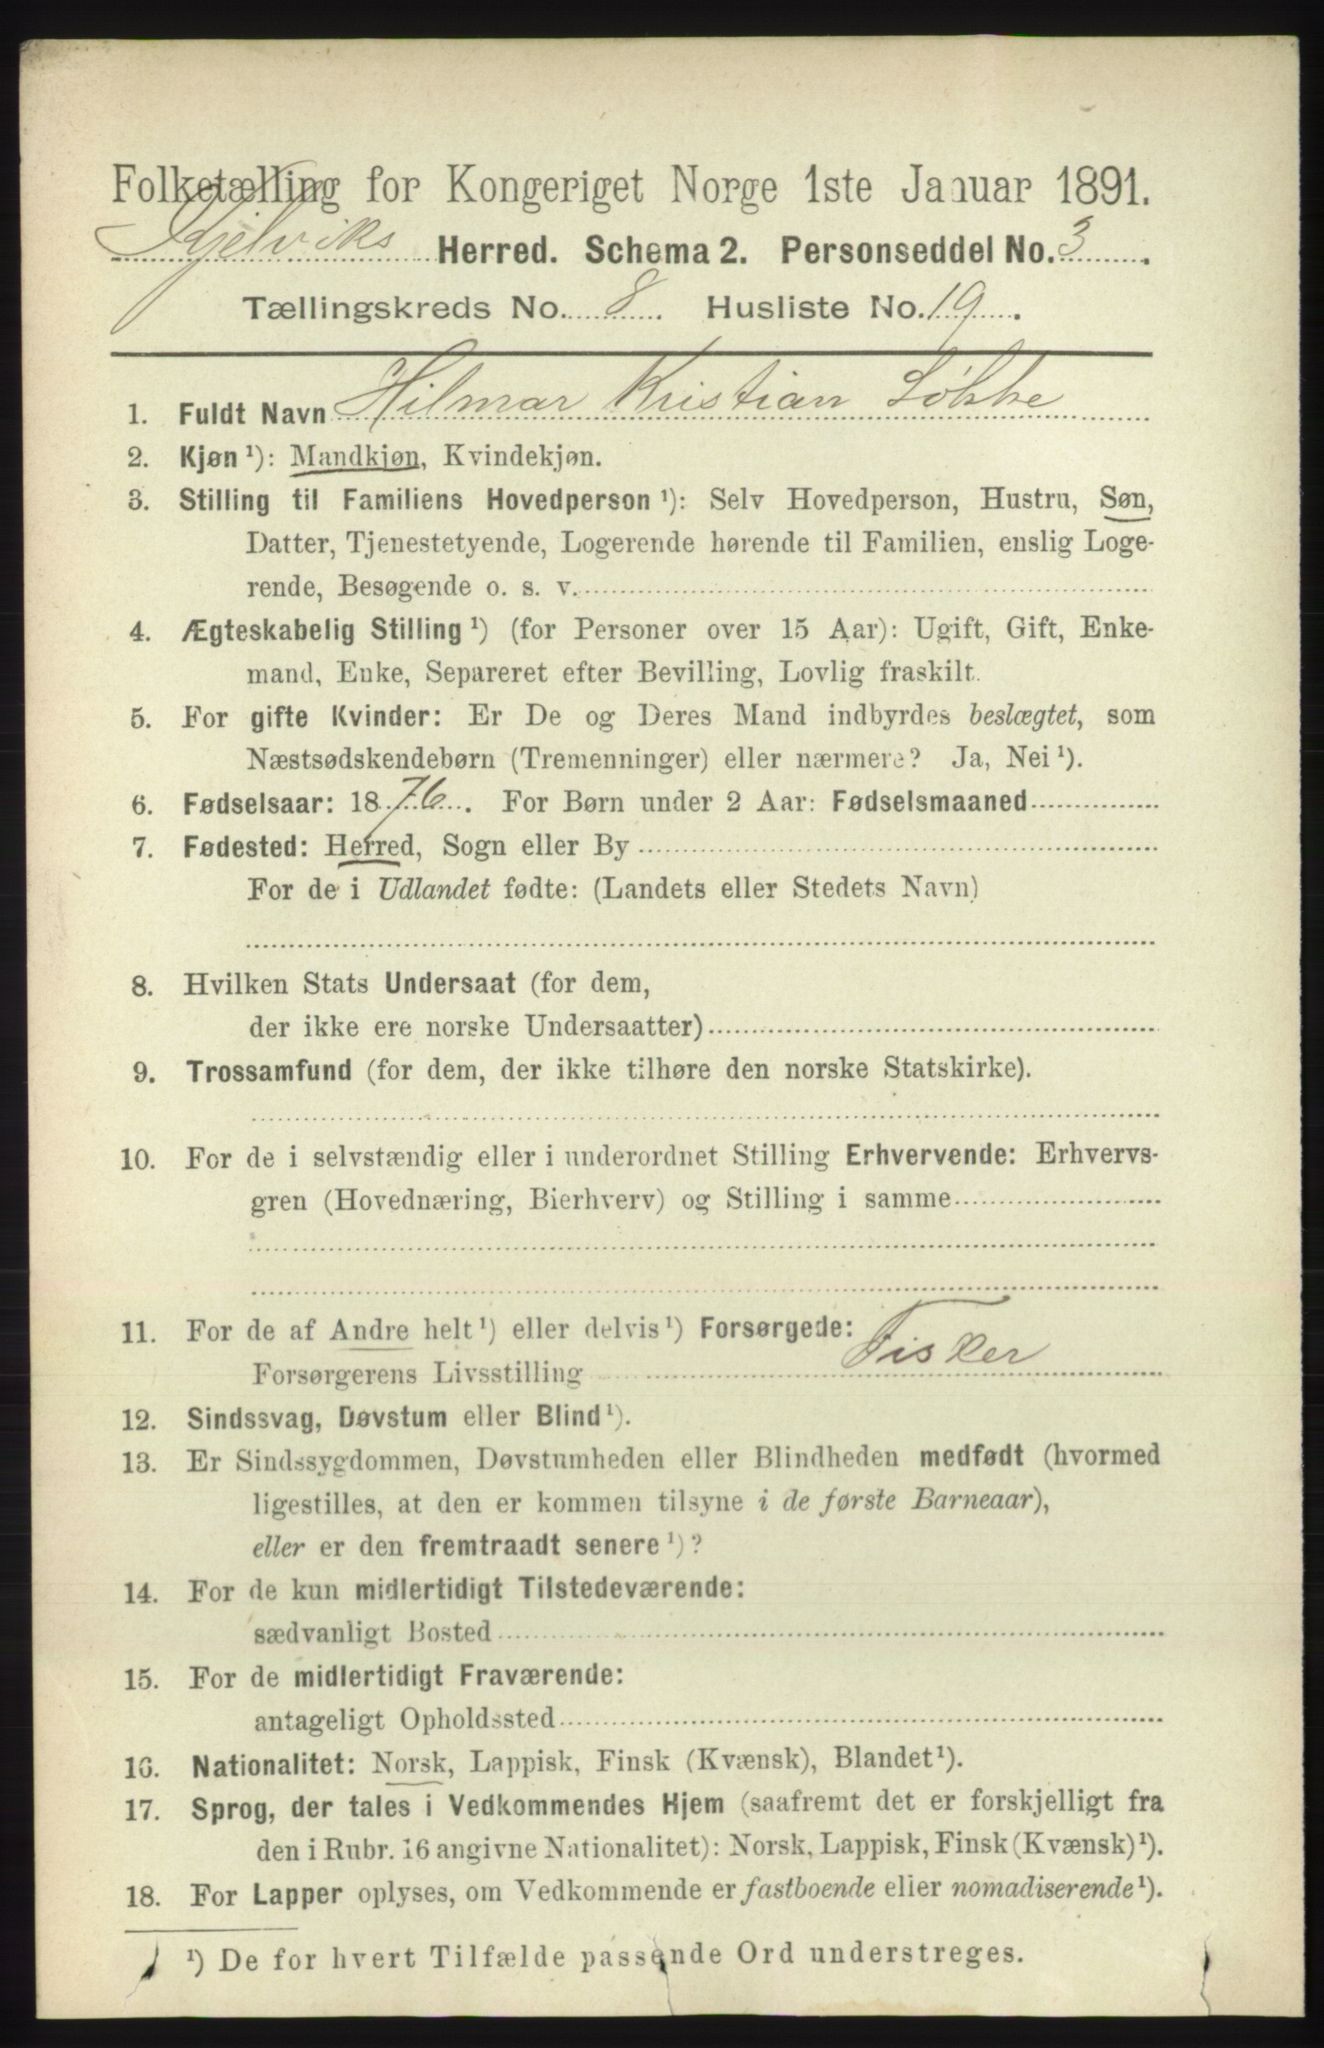 Folketælling for Kongeriget Norge 1ste Januar 1891.
Kjelviks Herred. Schema 2. Personseddel No. 3.
Tællingskreds No. 8. Husliste No. 19.
1. Fuldt Navn Hilmar Kristian Løkke
2. Kjøn ¹): Mandkjøn, Kvindekjøn.
3. Stilling til Familiens Hovedperson ¹): Selv Hovedperson, Hustru, Søn,
Datter, Tjenestetyende, Logerende hørende til Familien, enslig Loge-
rende, Besøgende o. s. v.
4. Ægteskabelig Stilling ¹) (for Personer over 15 Aar): Ugift, Gift, Enke-
mand, Enke, Separeret efter Bevilling, Lovlig fraskilt.
5. For gifte Kvinder: Er De og Deres Mand indbyrdes beslægtet, som
Næstsødskendebørn (Tremenninger) eller nærmere? Ja, Nei ¹).
6. Fødselsaar: 1876. For Børn under 2 Aar: Fødselsmaaned
7. Fødested: Herred, Sogn eller By
For de i Udlandet fødte: (Landets eller Stedets Navn)
8. Hvilken Stats Undersaat (for dem,
der ikke ere norske Undersaatter)
9. Trossamfund (for dem, der ikke tilhøre den norske Statskirke).
10. For de i selvstændig eller i underordnet Stilling Erhvervende: Erhvervs-
gren (Hovednæring, Bierhverv) og Stilling i samme
11. For de af Andre helt ¹) eller delvis ¹) Forsørgede:
Forsørgerens Livsstilling Fisker
12. Sindssvag, Døvstum eller Blind ¹).
13. Er Sindssygdommen, Døvstumheden eller Blindheden medfødt (hvormed
ligestilles, at den er kommen tilsyne i de første Barneaar),
eller er den fremtraadt senere ¹)?
14. For de kun midlertidigt Tilstedeværende:
sædvanligt Bosted
15. For de midlertidigt Fraværende:
antageligt Opholdssted
16. Nationalitet: Norsk, Lappisk, Finsk (Kvænsk), Blandet ¹).
17. Sprog, der tales i Vedkommendes Hjem (saafremt det er forskjelligt fra
den i Rubr. 16 angivne Nationalitet): Norsk, Lappisk, Finsk (Kvænsk) ¹).
18. For Lapper oplyses, om Vedkommende er fastboende eller nomadiserende ¹).
¹) De for hvert Tilfælde passende Ord understreges.